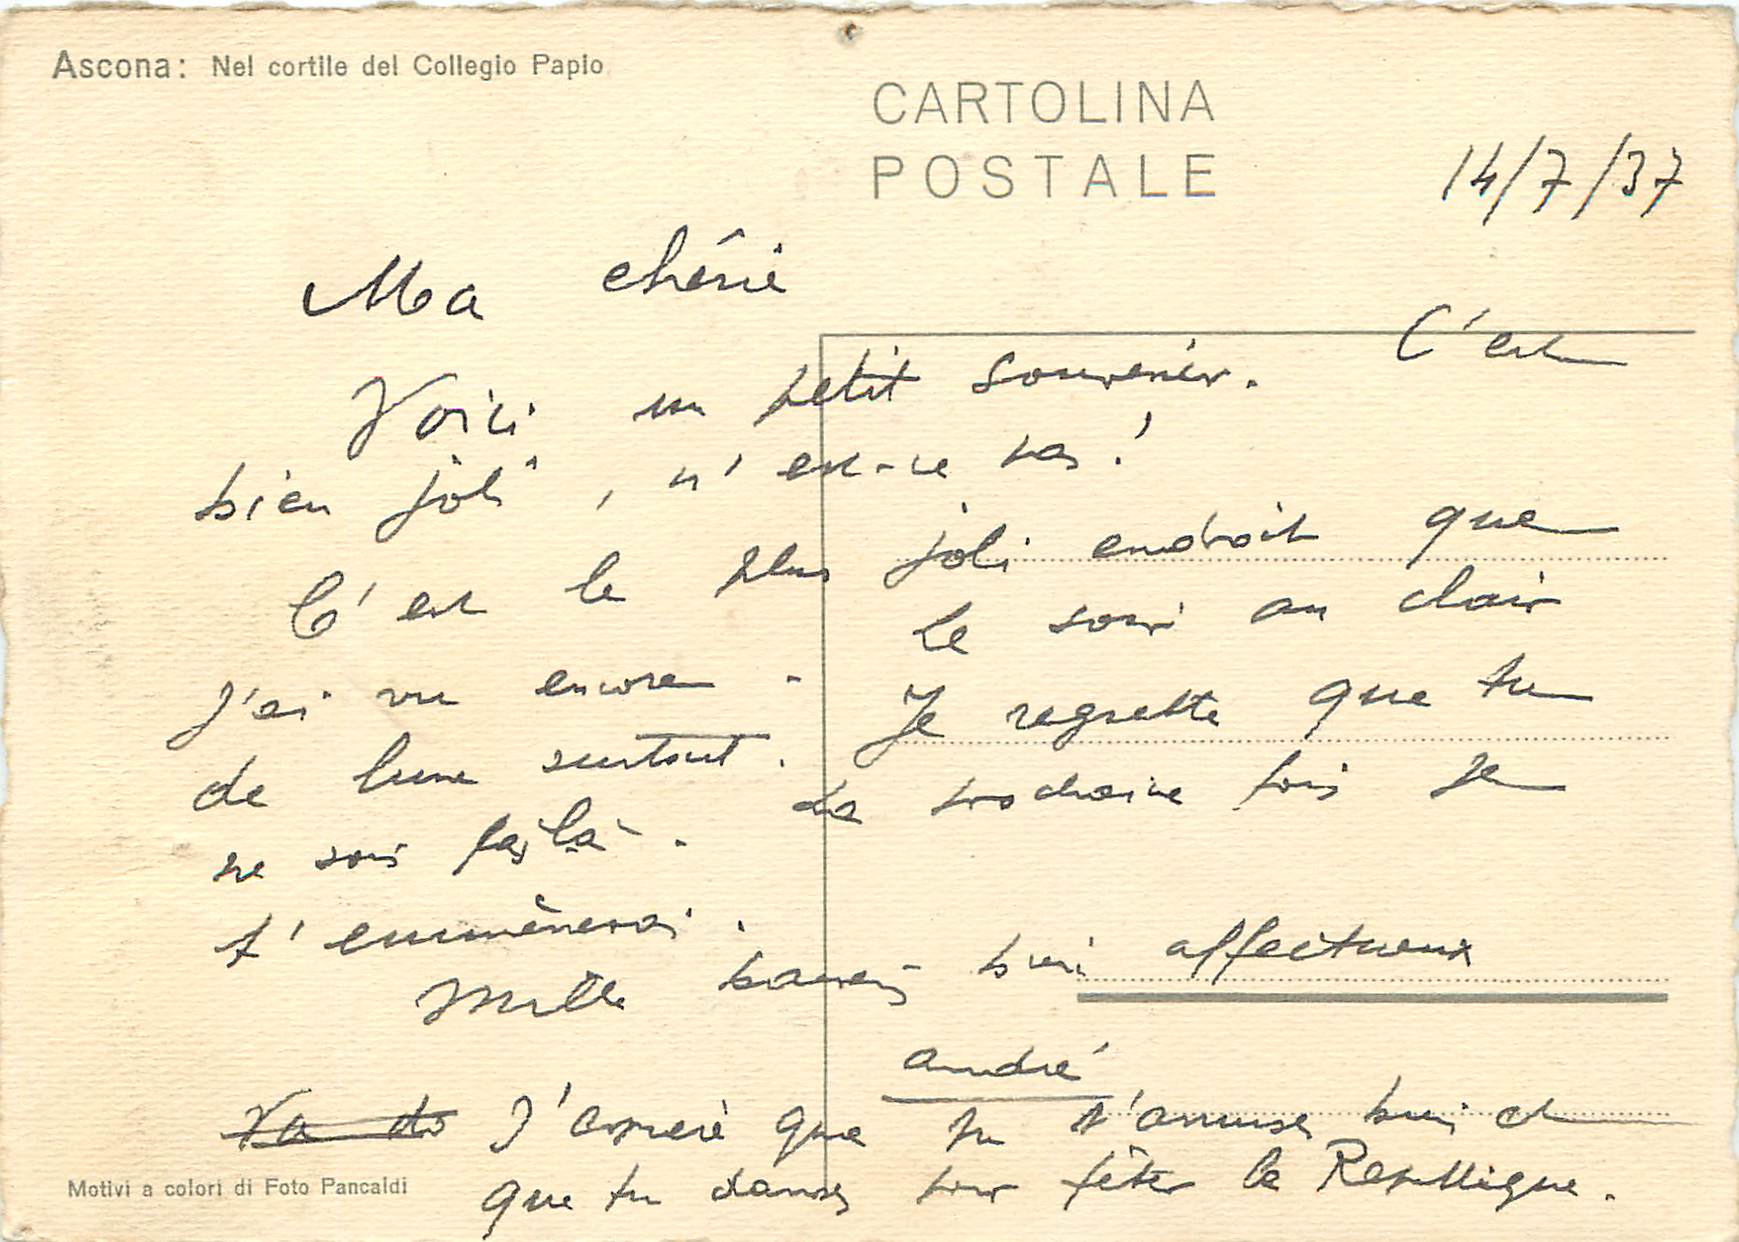 Ascona: Nel cortile del Collegio Papio
CARTOLINA
POSTALE
14/7/37
Ma chérie
Voici un petit souvenir. C'est
bien joli, n'est-ce pas!
C'est le plus joli endroit que
j'ai vu encore. Le soir au clair
de lune surtout. Je regrette que tu
ne sois pas là. La prochaine fois je
t'emmènerai.
Mille baisers bien affectueux
André
Va do J'espère que tu t'amuses bien et
que tu danses pour fêter la République.
Motivi a colori di Foto Pancaldi